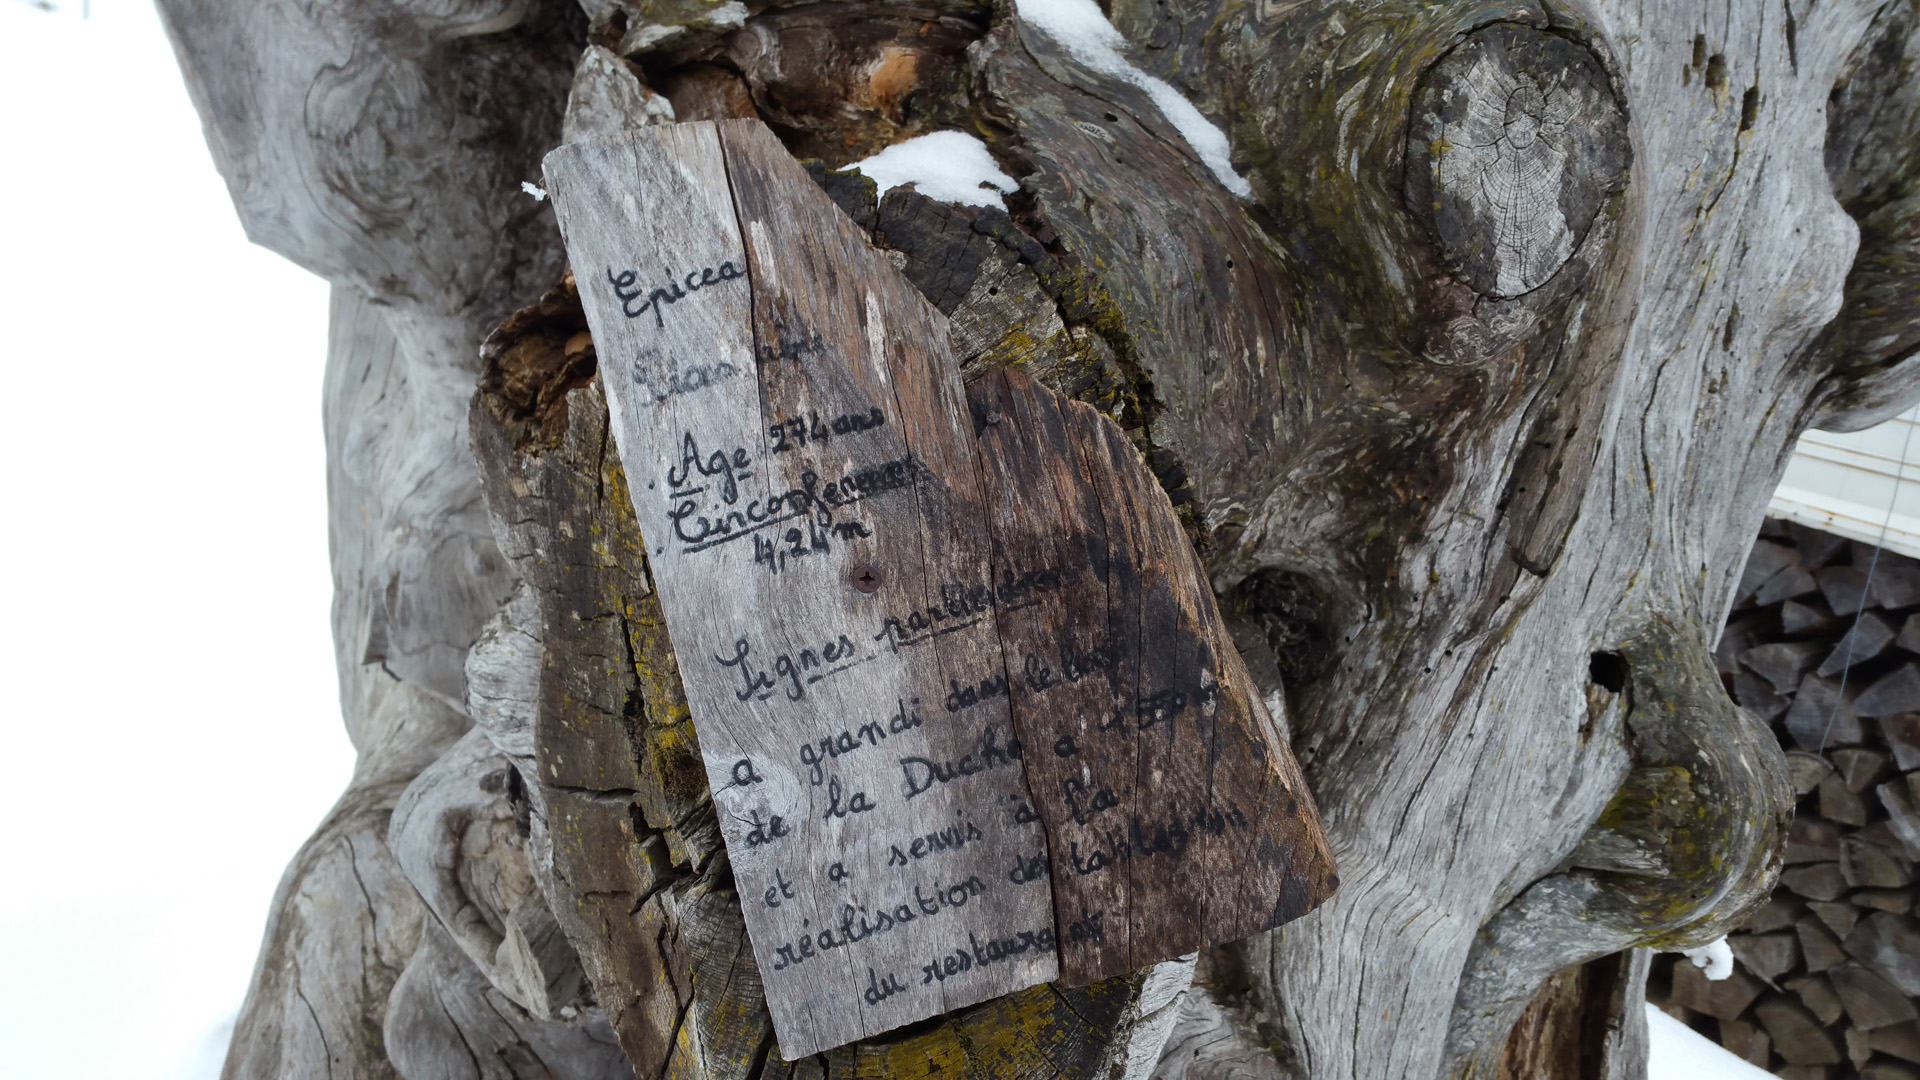 Epicea
. Age 274 ans
. Circonference
4,24 m
Signes particuliers
a grandi dans le bois
de la Duche a 1550 m
et a servis à la
réalisation des tables
du restaurant